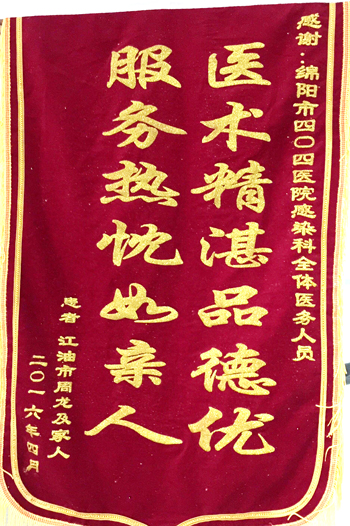 感谢：绵阳市四〇四医院感染科全体医务人员
医术精湛品德优
服务热忱如亲人
患者 江油市周龙及家人
二〇一六年四月